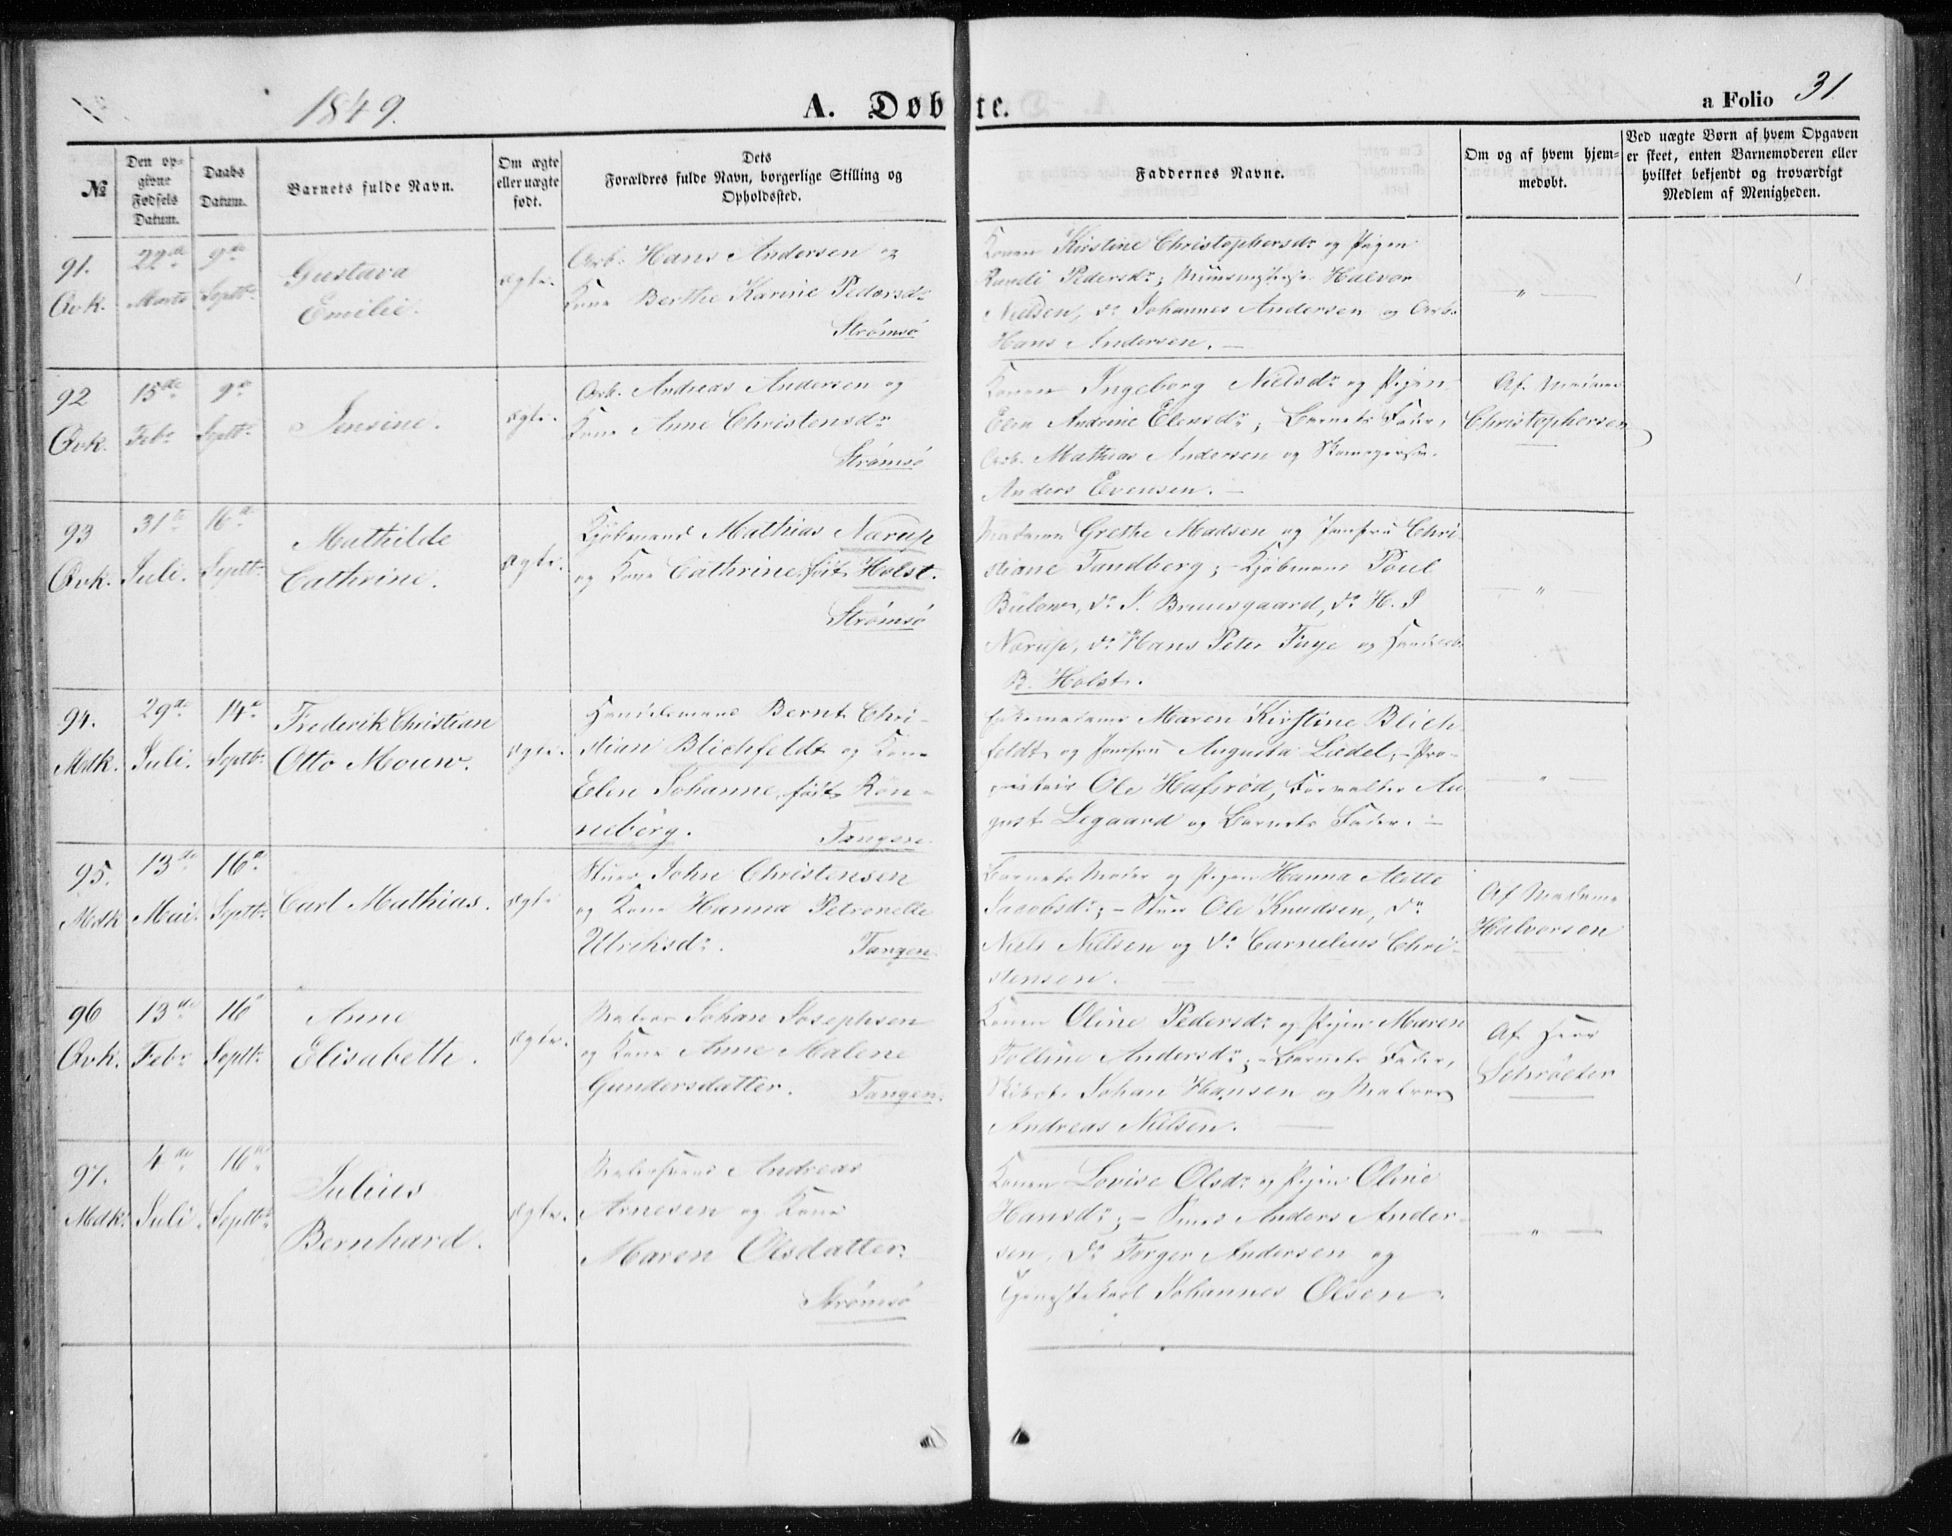 1849.
A. Døbte.
a Folio 31
№
Den opgivne Fødsels Datum.
Daabs Datum.
Barnets fulde Navn.
Om ægte eller uægte født.
Dets Forældres fulde Navn, borgerlige Stilling og Opholdssted.
Faddernes Navne.
Om og af hvem hjemmedøbt.
Ved uægte Børn af hvem Opgaven er skeet, enten Barnemoderen eller hvilket bekjendt og troværdigt Medlem af Menigheden.
91.
Qvk.
22de
Marts
9de
Septbr.
Gustava
Emilie.
ægte.
Arb. Hans Andersen og
Kone Berthe Karine Pedersdr
Strømsø
Konen Kirstine Christophersdr og Pigen
Randi Pedersdr; Halvor
Nielsen, do Johannes Andersen og Arb.
Hans Andersen. —
— " —
92
Qvk.
15de
Febr
9de
Septbr.
Jensine.
ægte.
Arb. Andreas Andersen og
Kone Anne Christensdr
Strømsø
Konen Ingeborg Nielsdr og Pigen
Elen Andrine Elensdr; Barnets Fader,
Arb. Mathias Andersen og
Anders Evensen. —
Af Madame
Christophersen
93
Qvk.
31te
Juli.
16de
Septbr.
Mathilde
Cathrine.
ægte.
Kjøbmand Mathias Nærup
og Kone Cathrine, født Holst.
Strømsø
Madame Grethe Madsen og Jomfru Chri-
stiane Tandberg; - Kjøbmand Poul
Bülow, do J. Bruusgaard, do H. P
Nærup, do Hans Peter Faye og
B. Holst.
— " —
94.
Mdk.
29de
Juli.
14de
Septbr.
Frederik Christian
Otto Mouw.
ægte.
Handelsmand Bernt Chri-
stian Blichfeldt og Kone
Elen Johanne, født Rön-
neberg.
Tangen.
Maren Kirstine Blich-
feldt og Jomfru Augusta Lüdel, - Pro-
prietair Ole Hafsrød, Forvalter Au
gust Legaard og Barnets Fader. —
— " —
95.
Mdk
13de
Mai.
16de
Septbr.
Carl Mathias.
ægte
Stuer John Christensen
og Kone Hanna Petronelle
Ulriksdr.
Tangen.
Barnets Moder og Pigen Hanna Mette
Jacobsdr; - Stuer Ole Knudsen, do
Niels Nielsen og do Carnelius Chri-
stensen. —
Af Madame
Halvorsen
96
Qvk.
13de
Febr
16de
Septbr
Anne
Elisabeth.
ægte.
Matros Johan Josephsen
og Kone Anne Malene
Gundersdatter.
Tangen.
Konen Oline Pedersdr og Pigen Maren
Tolline Andersdr; - Barnets Fader,
Johan Hansen og Matros
Andreas Nielsen. —
Af Herr
Schröeter
97.
Mdk.
4de
Juli.
16de
Septbr.
Julius
Bernhard.
ægte.
Andreas
Arnesen og Kone
Maren Olsdatter.
Strømsø
Konen Lovise Olsdr og Pigen Oline
Hansdr; - Anders Ander-
sen, do Torger Andersen og
Johannes Olsen.
— " —